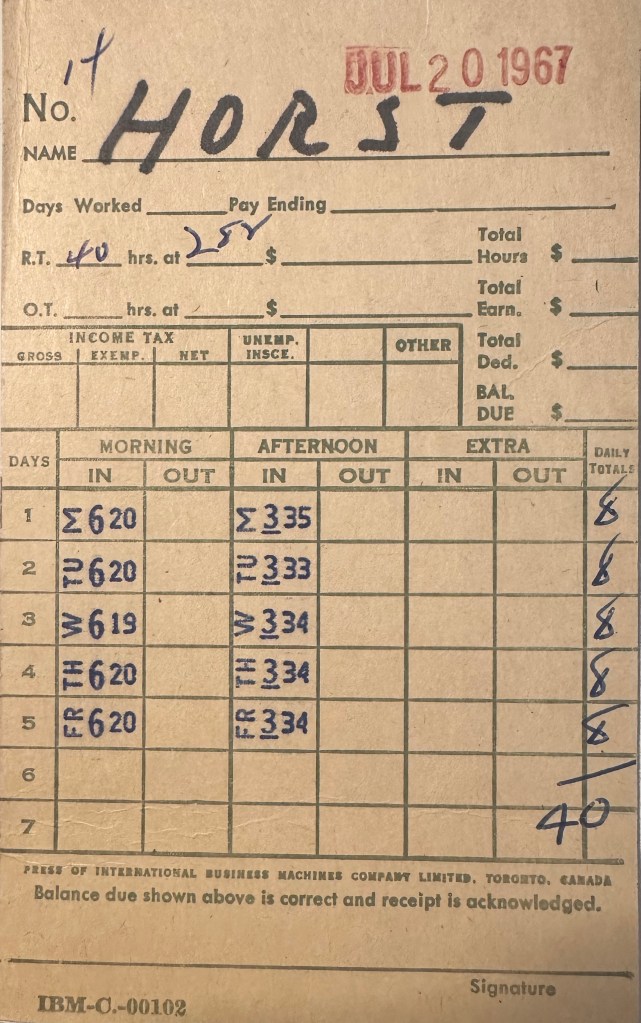 14
JUL 20 1967
No.
NAME HORST
Days Worked Pay Ending
R.T. 40 hrs. at $ Total Hours $
O.T. hrs. at $ Total Earn. $
INCOME TAX UNEMP. INSCE. OTHER Total Ded. $
GROSS EXEMP. NET
BAL. DUE $
DAYS MORNING AFTERNOON EXTRA DAILY TOTALS
IN OUT IN OUT IN OUT
1 M 6 20 M 3 35 8
2 TU 6 20 TU 3 33 8
3 W 6 19 W 3 34 8
4 TH 6 20 TH 3 34 8
5 FR 6 20 FR 3 34 8
6
7 40
PRESS OF INTERNATIONAL BUSINESS MACHINES COMPANY LIMITED, TORONTO, CANADA
Balance due shown above is correct and receipt is acknowledged.
Signature
IBM-C.-00102